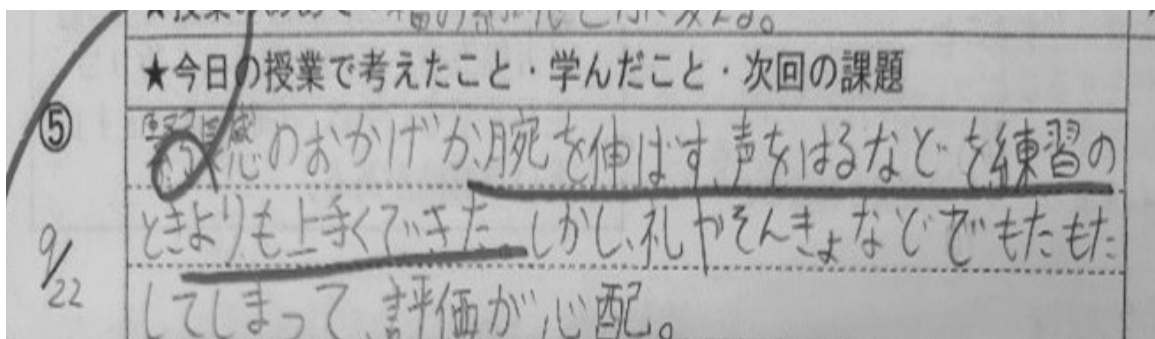 ★今日の授業で考えたこと・学んだこと・次回の課題
⑤
緊張感のおかげか、腕を伸ばす、声をはるなどを練習の
ときよりも上手くできた しかし、礼やそんきょなどでもたもた
9/22
してしまって、評価が心配。